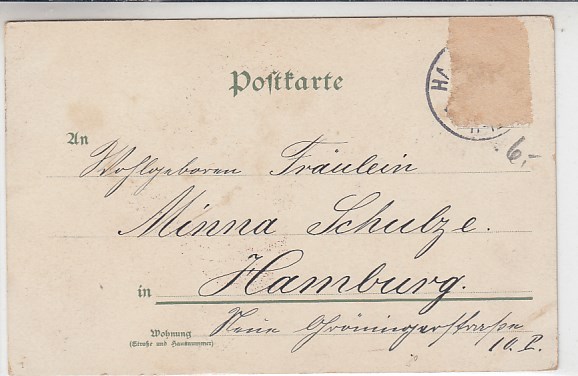 Postkarte
HA
6,-
An
Wohlgeboren Fräulein
Minna Schulze.
in Hamburg.
Wohnung
(Straße und Hausnummer)
Neue Gröningerstraße
10. I.